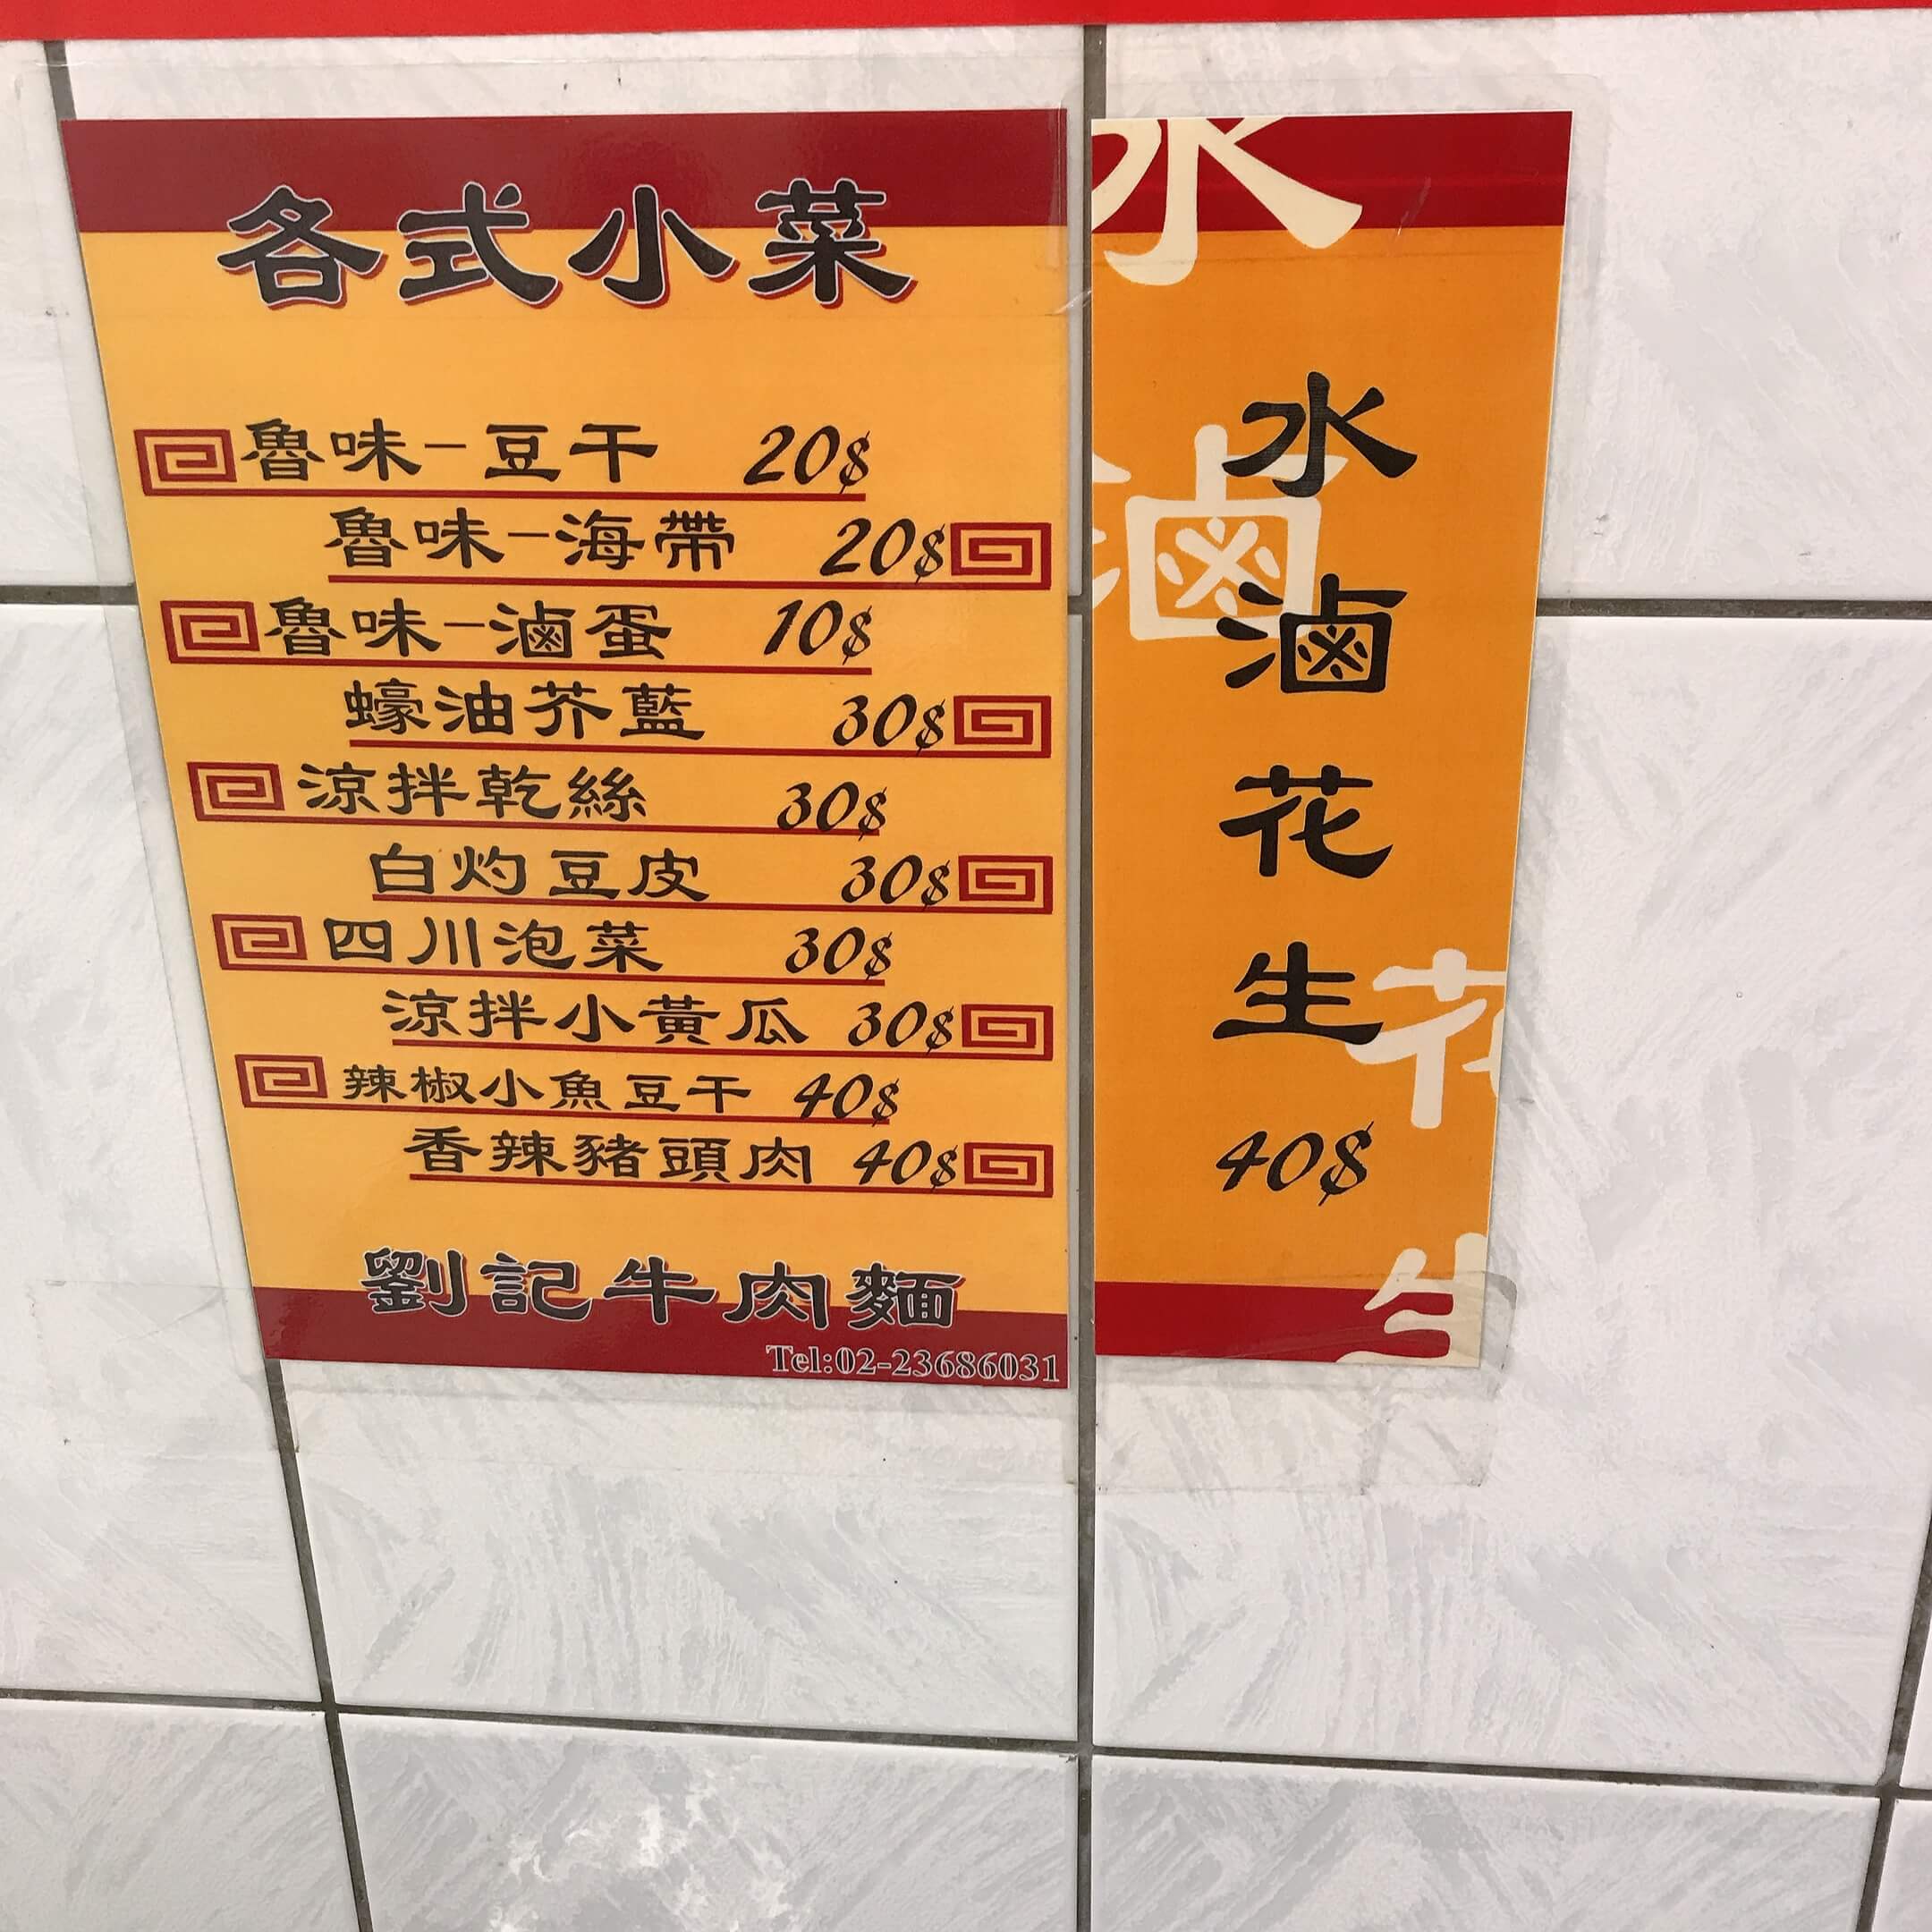 各式小菜
魯味-豆干 20$
魯味-海帶 20$
魯味-滷蛋 10$
蠔油芥藍 30$
涼拌乾絲 30$
白灼豆皮 30$
四川泡菜 30$
涼拌小黃瓜 30$
辣椒小魚豆干 40$
香辣豬頭肉 40$
劉記牛肉麵
Tel:02-23686031
水滷花生
40$
水
滷
花
生